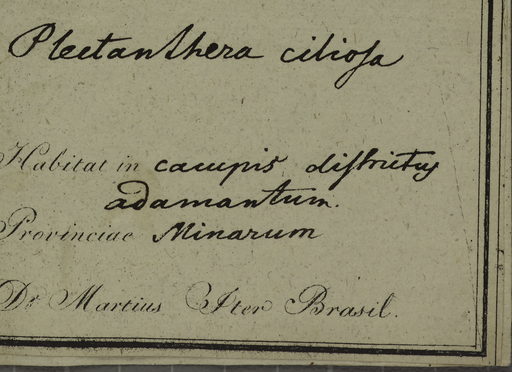 Plectanthera ciliosa
Habitat in campis districtus
adamantum.
Provinciae Minarum
Dr Martius Iter Brasil.